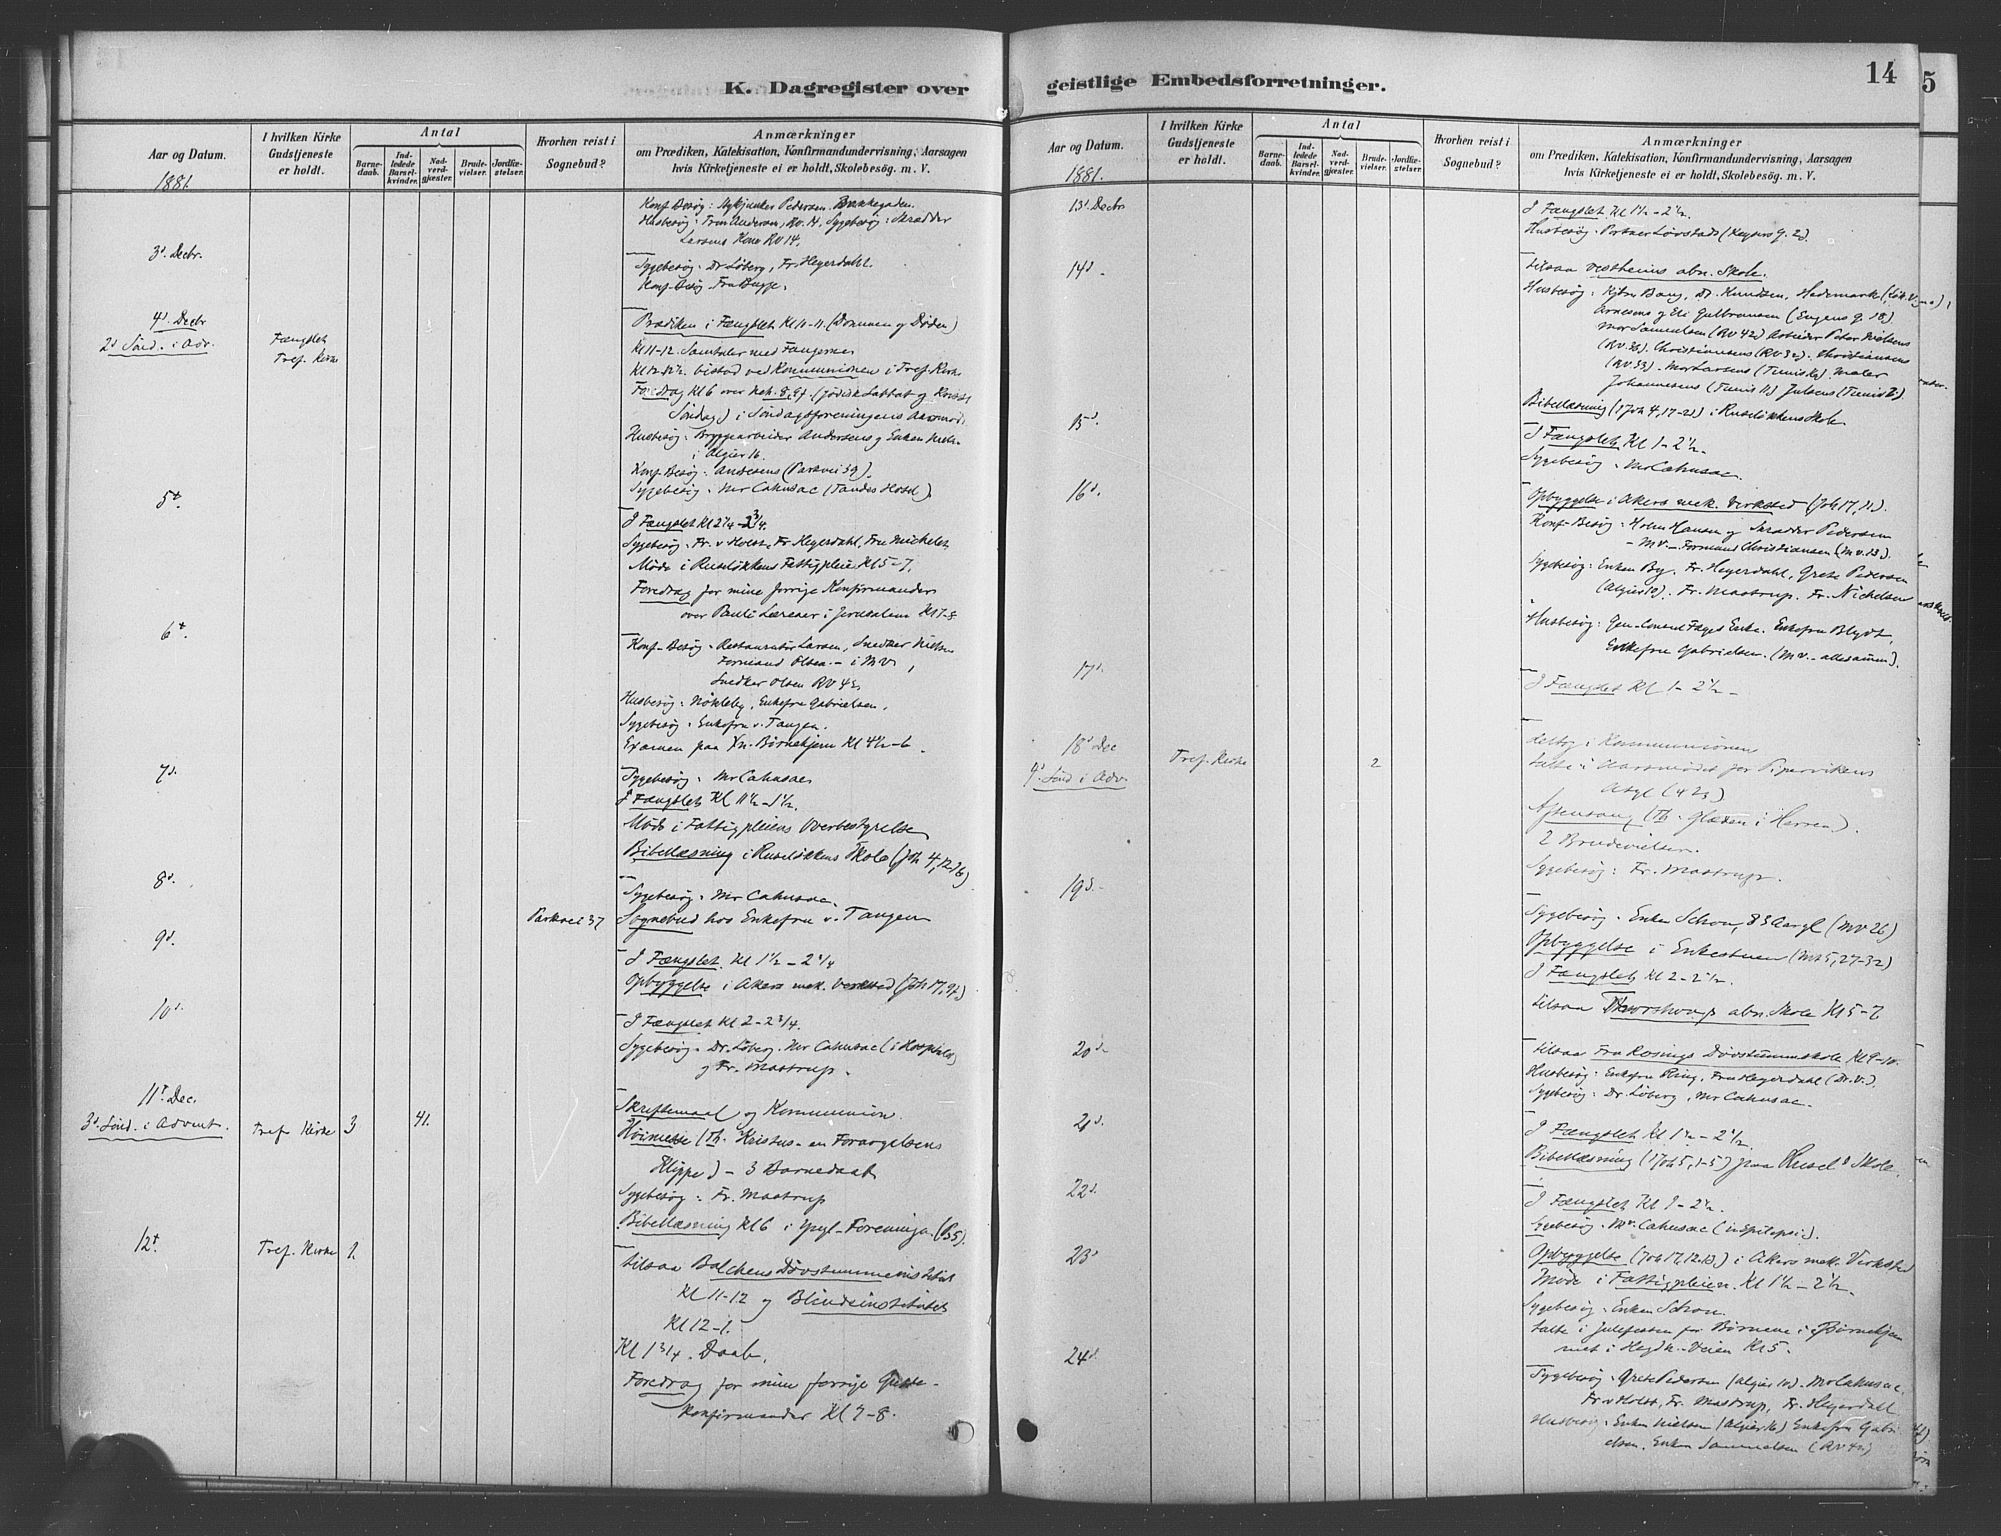 K. Dagregister over
Aar og Datum.
I hvilken Kirke Gudstjeneste er holdt.
Antal
Barnedaab.
Indledede Barselkvinder.
Nadverdgjæster.
Brudevielser.
Jordfæstelser.
Hvorhen reist i Sognebud?
Anmærkninger
om Prædiken, Katekisation, Konfirmandundervisning, Aarsagen
hvis Kirketjeneste ei er holdt, Skolebesøg. m. V.
1881.
Konf. Besøg: Pedersen.
Husbesøg: Andersen, RV. 14. Sygebesøg: Skrædder
Larsens Kone RV 14.
3d. Decbr.
Sygebesøg: Dr Løberg, Fr. Heyerdahl.
Konf-Besøg Fru Bugge.
4d. Decbr
2d Sønd. i Adv.
Fængslet
Tref. Kirke
Prædiken i Fængslet Kl 10-11. (Dommen og Døden)
Kl 11-12. Samtaler med Fangerne
Kl 12-12½. bistod ved Kommunionen i Tref. Kirke
Foredrag Kl 6 over (jødisk Sabbat og Kristi
Søndag) i Søndagsforeningens Aarsmøde
Husbesøg: Bryggearbeider Andersens og Enken
i Algier 16.
Konf-Besøg: Andersens (Parkvei 39).
Sygebesøg: Mr Cahusac (Tandes Hotel).
5t.
I Fængslet Kl 2¼-3¾.
Sygebesøg: Fr. v Holst, Fr Heyerdahl, Fru Michelet
Møde i Ruseløkkens Fattigpleie Kl 5-7.
Foredrag for mine forrige Konfirmander
over Pauli i Jerusalem Kl 7-8
6t.
Konf-Besøg: Restauratør Larsen, Snedker Nielsen
Formand Olsen - i MV,
Snedker Olsen RV 43.
Husbesøg: Nøkleby, Enkefru Gabrielsen.
Sygebesøg: Enkefru v. Tangen.
Examen paa Børnehjem Kl 4½-6.
7d.
Sygebesøg: Mr Cahusac
I Fængslet Kl 11½-1½.
Møde i Fattigpleiens Overbestyrelse
Bibellæsning i Ruseløkkens Skole (Joh 4, 12-16)
8d.
Sygebesøg: Mr Cahusac.
Parkvei 37
Sognebud hos Enkefru v. Tangen
9d.
I Fængslet. Kl 1½-2¼
Opbyggelse i Akers mek. Verksted (Joh 17, 9f.)
10d.
I Fængslet Kl 2-2¾.
Sygebesøg: Dr. Løberg. Mr Cahusac (i Hospitalet)
og Fr. Mastrup.
11t Dec.
3d. Sønd. i Advent.
Tref Kirke
3
41.
Skriftemaal og Kommunion.
Høimesse (Th. Kristus - en Forargelsens
Klippe) - 3 Barnedaab
Sygebesøg: Fr. Mastrup
Bibellæsning Kl 6 i Foreninga
12t.
Tref. Kirke
1.
tilsaa Balchens Døvstummeinstitut
Kl 11-12 og Blindeinstitutet
Kl 12-1.
Kl 1¾. Daab.
Foredrag for mine forrige Gutte-
konfirmander Kl 7-8.
geistlige Embedsforretninger.
14
5
Aar og Datum.
I hvilken Kirke Gudstjeneste er holdt.
Antal
Barnedaab.
Indledede Barselkvinder.
Nadverdgjæster.
Brudevielser.
Jordfæstelser.
Hvorhen reist i Sognebud?
Anmærkninger
om Prædiken, Katekisation, Konfirmandundervisning, Aarsagen
hvis Kirketjeneste ei er holdt, Skolebesøg. m. V.
1881.
13d. Decbr
I Fængslet. Kl 1½-2½.
Husbesøg: Portner Løvstads (Keysers G. 2).
14d.
tilsaa Vestheims abn. Skole.
Husbesøg: Bang, Dr. Knudsen, Hedemark
Arnesens og Eli Gulbransen (Eugens G. 18)
Mor Samuelsen (RV 42) Arbeider Peter Nielsens
(RV. 33). Christiansens (RV 32). Christiansens
(RV. 33). Mor Larsens (Tunis). Maler
Johannesens (Tunis 11) Julsens (Tunis)
Bibellæsning (1 Joh 4, 17-21) i Ruseløkkens Skole
15d.
I Fængslet Kl 1-2½.
Sygebesøg: Mr Cahusac.
16d.
Opbyggelse i Akers mek. Verksted (Joh 17, 11).
Konf-Besøg: Holm Hansen og Skrædder Pedersen
- MV. - Formand Christiansen (MV. 13).
Sygebesøg: Enken By, Fr. Heyerdahl, Grete Pedersen
(Algier 10). Fr. Mastrup. Fr. Nickelsen
Husbesøg: Gen-Consul Enke. Enkefru Blydt,
Enkefru Gabrielsen. (MV. - allesammen).
17d.
I Fængslet Kl 1-2½
18d Dec
4d Sønd i Adv.
Tref. Kirke
2
deltog i Kommunionen
talte i Aarsmødet for Pipervikens
Asyl
Aftensang (Th. Glæden i Herren).
2 Brudevielser.
Sygebesøg: Fr. Mastrup.
19d.
Sygebesøg: Enken Schou, 83 Aar gl (MV 26)
Opbyggelse i Enkestuen (Mt 5, 27-32)
I Fængslet Kl 2-2½.
tilsaa Thorshougs abn. Skole Kl 5-7
20d.
tilsaa Fru Rosings Døvstummskole Kl 9-10.
Husbesøg: Enkefru Ring, Fru Heyerdahl (Dr. V.).
Sygebesøg: Dr. Løberg, Mr Cahusac.
21d.
I Fængslet Kl 1½-2½
Bibellæsning (1 Joh 5, 1-5) paa Rusel. Skole
22d.
I Fængslet Kl 1-2½.
Sygebesøg: Mr. Cahusac
23d
Opbyggelse (Joh 17, 12.13) i Akers mek. Virksted
Møde i Fattigpleien. Kl 1½-2½.
Sygebesøg: Enken Schou.
talte i Julefesten for Børnene i Børnehjem
met i Hegdh.-Veien Kl 5.
24d.
Sygebesøg: Grete Pedersen (Algier 10). Mr Cahusac.
Fr v Holst, Fr. Mastrup, Fr. Heyerdahl
Husbesøg: Enken Nielsen (Algier 16) Enkefru Gabri
elsen. Enken Samuelsen (RV 42)